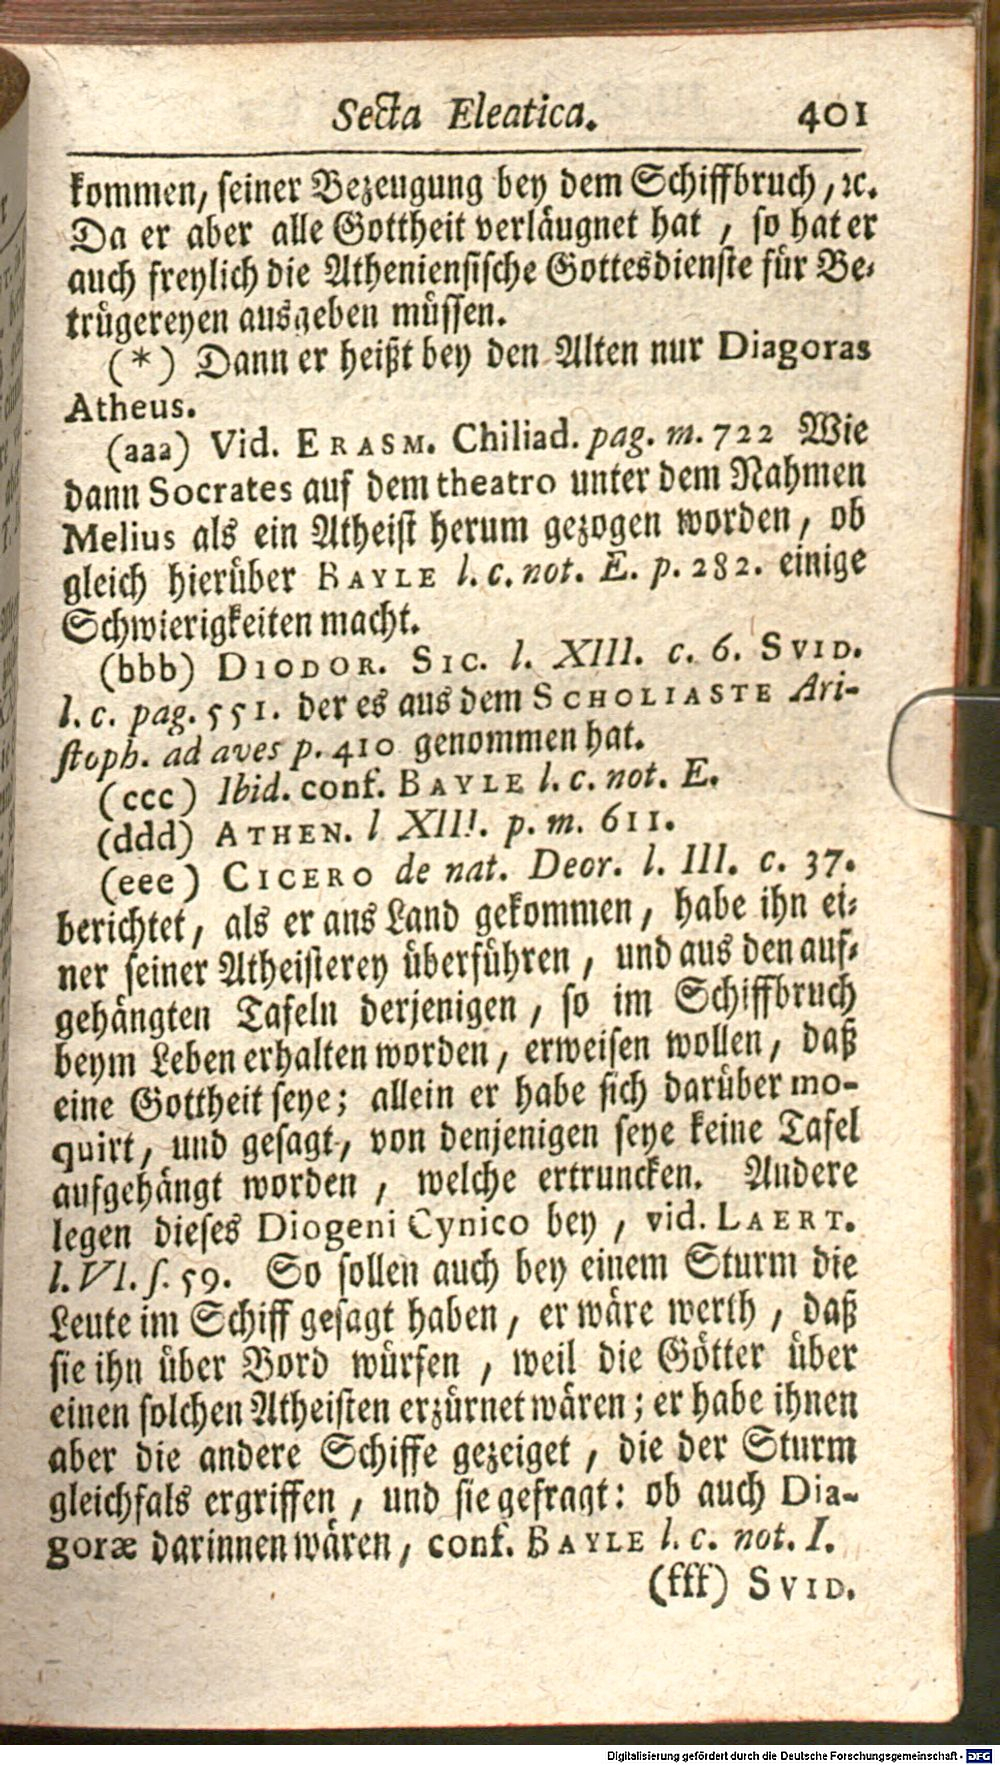 Secta Eleatica. 401
kommen, seiner Bezeugung bey dem Schiffbruch, ꝛc.
Da er aber alle Gottheit verläugnet hat, so hat er
auch freylich die Atheniensische Gottesdienste für Be-
trügereyen ausgeben müssen.
(*) Dann er heißt bey den Alten nur Diagoras
Atheus.
(aaa) Vid. ERASM. Chiliad. pag. m. 722 Wie
dann Socrates auf dem theatro unter dem Nahmen
Melius als ein Atheist herum gezogen worden, ob
gleich hierüber BAYLE l. c. not. E. p. 282. einige
Schwierigkeiten macht.
(bbb) DIODOR. SIC. l. XIII. c. 6. SVID.
l. c. pag. 551. der es aus dem SCHOLIASTE Ari-
stoph. ad aves p. 410 genommen hat.
(ccc) Ibid. conf. BAYLE l. c. not. E.
(ddd) ATHEN. l XIII. p. m. 611.
(eee) CICERO de nat. Deor. l. III. c. 37.
berichtet, als er ans Land gekommen, habe ihn ei-
ner seiner Atheisterey überführen, und aus den auf-
gehängten Tafeln derjenigen, so im Schiffbruch
beym Leben erhalten worden, erweisen wollen, daß
eine Gottheit seye; allein er habe sich darüber mo-
quirt, und gesagt, von denjenigen seye keine Tafel
aufgehängt worden, welche ertruncken. Andere
legen dieses Diogeni Cynico bey, vid. LAERT.
l. VI. s. 59. So sollen auch bey einem Sturm die
Leute im Schiff gesagt haben, er wäre werth, daß
sie ihn über Bord würfen, weil die Götter über
einen solchen Atheisten erzürnet wären; er habe ihnen
aber die andere Schiffe gezeiget, die der Sturm
gleichfals ergriffen, und sie gefragt: ob auch Dia-
goræ darinnen wären, conf. BAYLE l. c. not. I.
(fff) SVID.
Digitalisierung gefördert durch die Deutsche Forschungsgemeinschaft - DFG